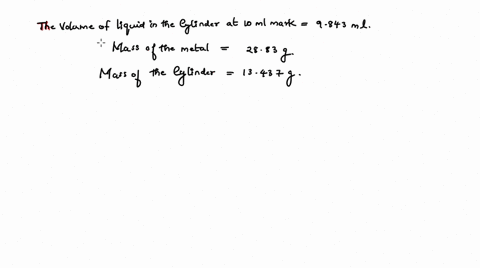 The volume of liquid in the cylinder at 10 ml mark = 9.843 ml.
Mass of the metal = 28.83 g.
Mass of the cylinder = 13.437 g.